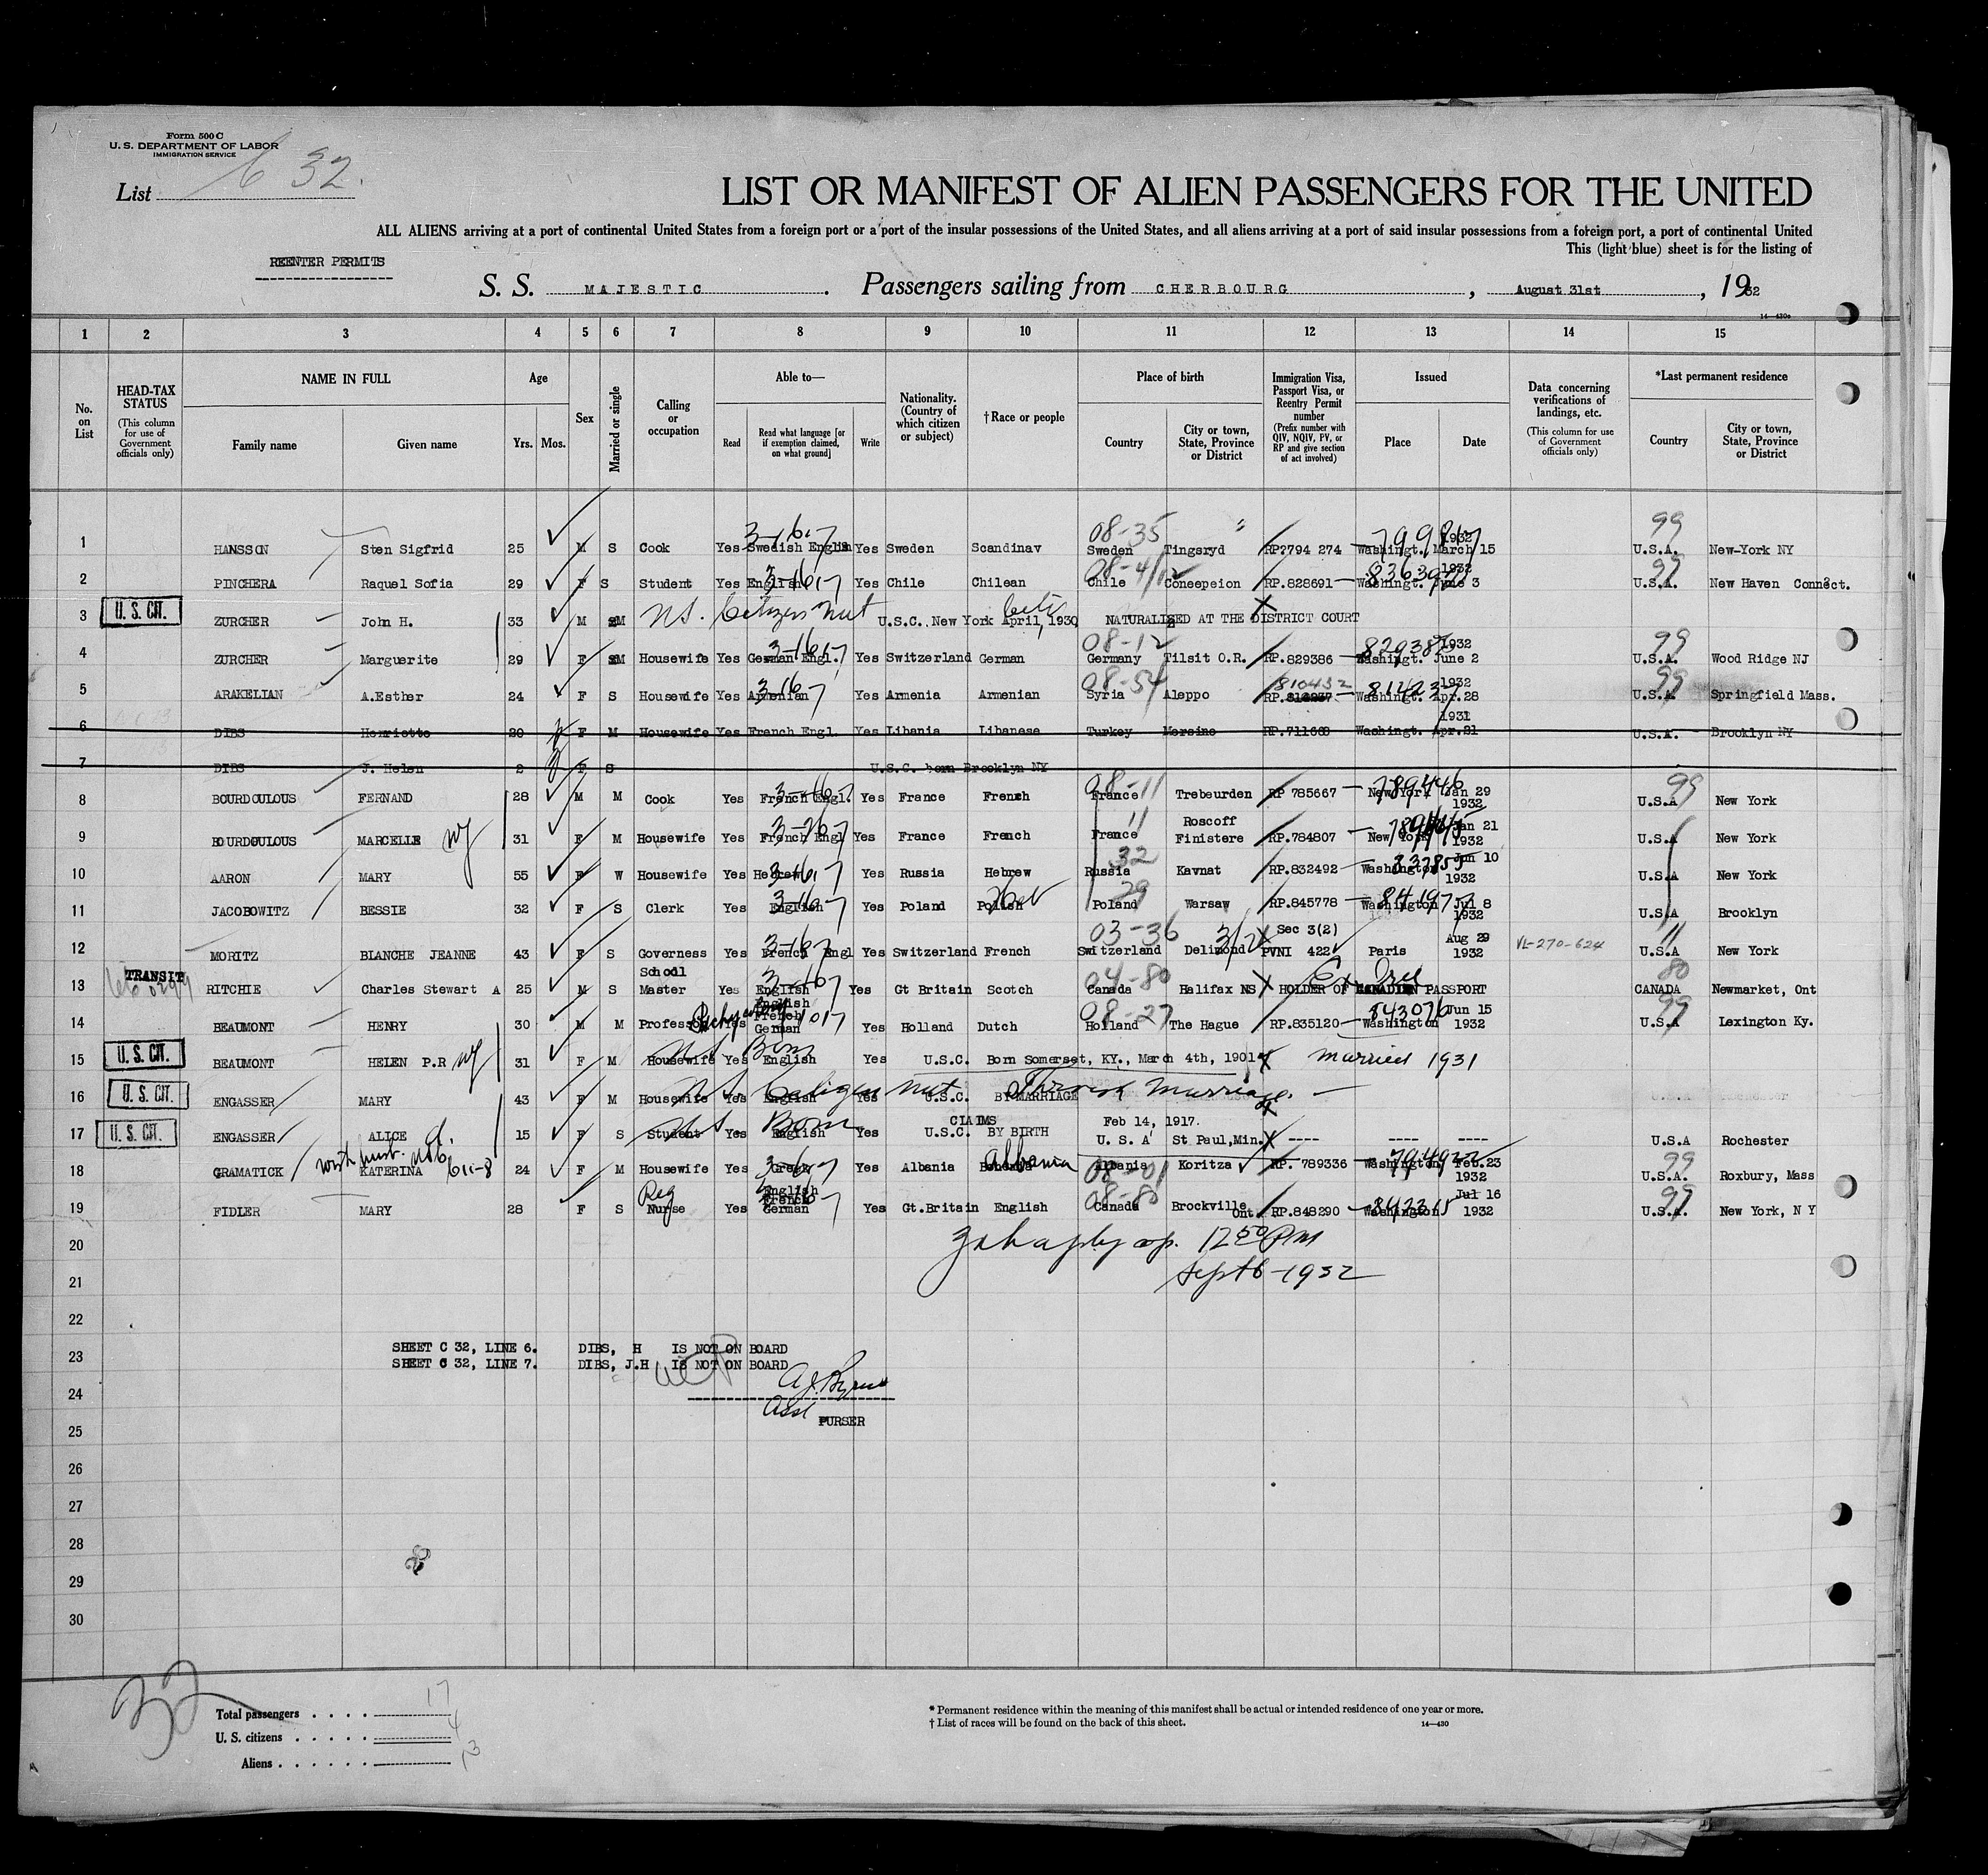 Form 500 C
U. S. DEPARTMENT OF LABOR
IMMIGRATION SERVICE
List C 32.
LIST OR MANIFEST OF ALIEN PASSENGERS FOR THE UNITED
ALL ALIENS arriving at a port of continental United States from a foreign port or a port of the insular possessions of the United States, and all aliens arriving at a port of said insular possessions from a foreign port, a port of continental United
This (light blue) sheet is for the listing of
REENTER PERMITS
S. S. MAJESTIC . Passengers sailing from CHERBOURG , August 31st , 1932
14—430a
1 2 3 4 5 6 7 8 9 10 11 12 13 14 15
No. on List
HEAD-TAX STATUS (This column for use of Government officials only)
NAME IN FULL
Family name Given name
Age
Yrs. Mos.
Sex
Married or single
Calling or occupation
Able to—
Read Read what language [or if exemption claimed, on what ground] Write
Nationality. (Country of which citizen or subject)
†Race or people
Place of birth
Country City or town, State, Province or District
Immigration Visa, Passport Visa, or Reentry Permit number (Prefix number with QIV, NQIV, PV, or RP and give section of act involved)
Issued
Place Date
Data concerning verifications of landings, etc. (This column for use of Government officials only)
*Last permanent residence
Country City or town, State, Province or District
1 HANSSON Sten Sigfrid 25 M S Cook Yes Swedish English Yes Sweden Scandinav 08-35 Sweden Tingsryd RP?794 274 Washingt. March 15 1932 99 U.S.A. New-York NY
2 PINCHERA Raquel Sofia 29 F S Student Yes English Yes Chile Chilean Chile Concepcion RP.828691 Washingt. June 3 1932 99 U.S.A. New Haven Connect.
3 U. S. CIT. ZURCHER John H. 33 M M U.S.C. New York April, 1930 NATURALISED AT THE DISTRICT COURT
4 ZURCHER Marguerite 29 F M Housewife Yes German Engl. Yes Switzerland German 08-12 Germany Tilsit O.R. RP.829386 Washingt. June 2 1932 99 U.S.A. Wood Ridge NJ
5 ARAKELIAN A.Esther 24 F S Housewife Yes Armenian Yes Armenia Armenian 08-54 Syria Aleppo 810432 RP. Washingt. Apr.28 1932 99 U.S.A Springfield Mass.
6 DIBS Henriette 20 F M Housewife Yes French Engl. Yes Libania Libanese Turkey Mersine RP.711660 Washingt. Apr.21 1931 U.S.A. Brooklyn NY
7 DIBS J. Helen 2 F S U.S.C. born Brooklyn NY
8 BOURDOULOUS FERNAND 28 M M Cook Yes French Engl. Yes France French 08-11 France Trebeurden RP 785667 789446 New York Jan 29 1932 99 U.S.A New York
9 BOURDOULOUS MARCELLE 31 F M Housewife Yes French Engl Yes France French 11 France Roscoff Finistere RP.784807 New York Jan 21 1932 U.S.A New York
10 AARON MARY 55 F W Housewife Yes Hebrew Yes Russia Hebrew 32 Russia Kavnat RP.832492 Washington Jun 10 1932 U.S.A New York
11 JACOBOWITZ BESSIE 32 F S Clerk Yes English Yes Poland Polish Heb 29 Poland Warsaw RP.845778 Washington Jul 8 1932 U.S.A Brooklyn
12 MORITZ BLANCHE JEANNE 43 F S Governess Yes French Engl Yes Switzerland French 03-36 Switzerland Delimond Sec 3(2) PVNI 422 Paris Aug 29 1932 VL-270-624 11 U.S.A New York
13 TRANSIT RITCHIE Charles Stewart A 25 M S School Master Yes English Yes Gt Britain Scotch 04-80 Canada Halifax NS HOLDER OF CANADIEN PASSPORT 80 CANADA Newmarket, Ont
14 BEAUMONT HENRY 30 M M Professor Psychology Yes English French German Yes Holland Dutch 08-27 Holland The Hague RP.835120 843076 Washington Jun 15 1932 99 U.S.A Lexington Ky.
15 U. S. CIT. BEAUMONT HELEN P.R wf 31 F M Housewife US Born Yes English Yes U.S.C. Born Somerset, KY., March 4th, 1901 Married 1931
16 U. S. CIT. ENGASSER MARY 43 F M Housewife Yes English Yes U.S.C. BY MARRIAGE Through Marriage.
17 U. S. CIT. ENGASSER ALICE d. 15 F S Student US Born Yes English Yes CLAIMS U.S.C. BY BIRTH Feb 14, 1917. U. S. A St Paul,Min. ---- ---- ---- U.S.A Rochester
18 GRAMATICK KATERINA 24 F M Housewife Yes Greek Yes Albania Albania Albania 08-01 Koritza RP. 789336 Washington Feb.23 1932 99 U.S.A. Roxbury, Mass
19 FIDLER MARY 28 F S Reg Nurse Yes English French German Yes Gt.Britain English 08-80 Canada Brockville Ont RP.848290 Washington Jul 16 1932 99 U.S.A. New York, N Y
20 12 50 PM
21 Sept 6-1932
22
23 SHEET C 32, LINE 6. DIBS, H IS NOT ON BOARD
SHEET C 32, LINE 7. DIBS, J.H IS NOT ON BOARD
24 A J. Byrne
25 Asst PURSER
26
27
28
29
30
32
Total passengers . . . . 17
U. S. citizens . . . . . 4
Aliens . . . . . . 13
* Permanent residence within the meaning of this manifest shall be actual or intended residence of one year or more.
† List of races will be found on the back of this sheet. 14—430